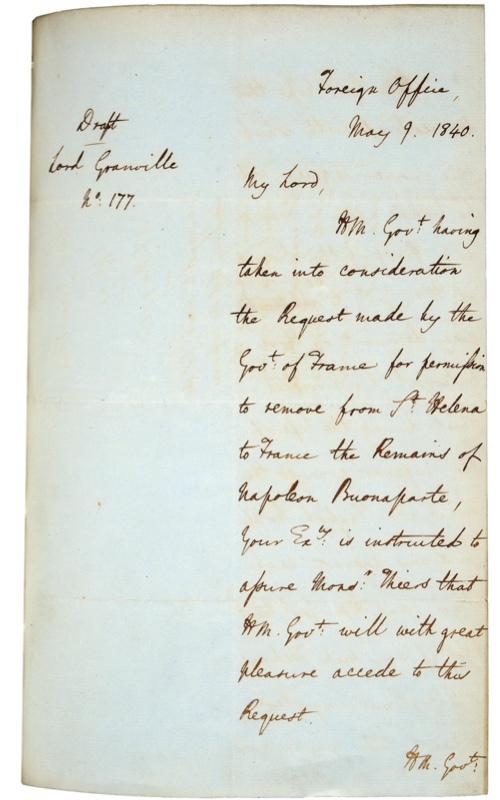 Foreign Office,
May 9. 1840.
Draft
Lord Granville
No. 177.
My Lord,
HM. Govt. having
taken into consideration
the Request made by the
Govt. of France for permission
to remove from St. Helena
to France the Remains of
Napoleon Buonaparte,
Your Exy. is instructed to
assure Monsr. Thiers that
HM. Govt. will with great
pleasure accede to this
Request.
HM. Govt.